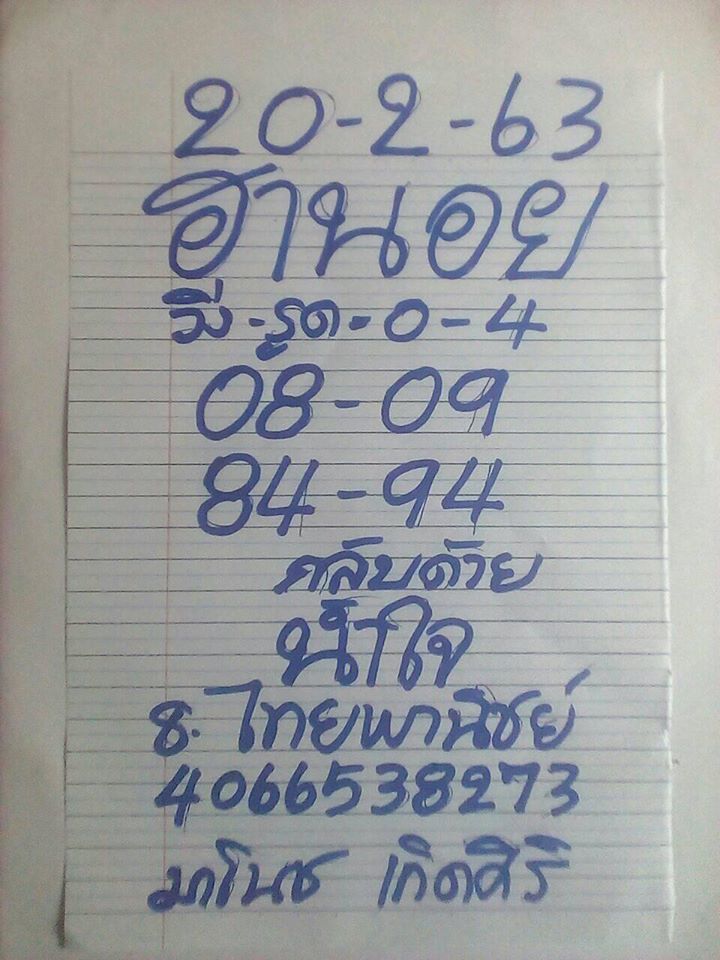 20-2-63
ฮานอย
วิ่-รูด-0-4
08-09
84-94
กลับด้วย
น้ำใจ
ธ.ไทยพานิชย์
4066538273
มาโนช เกิดศิริ